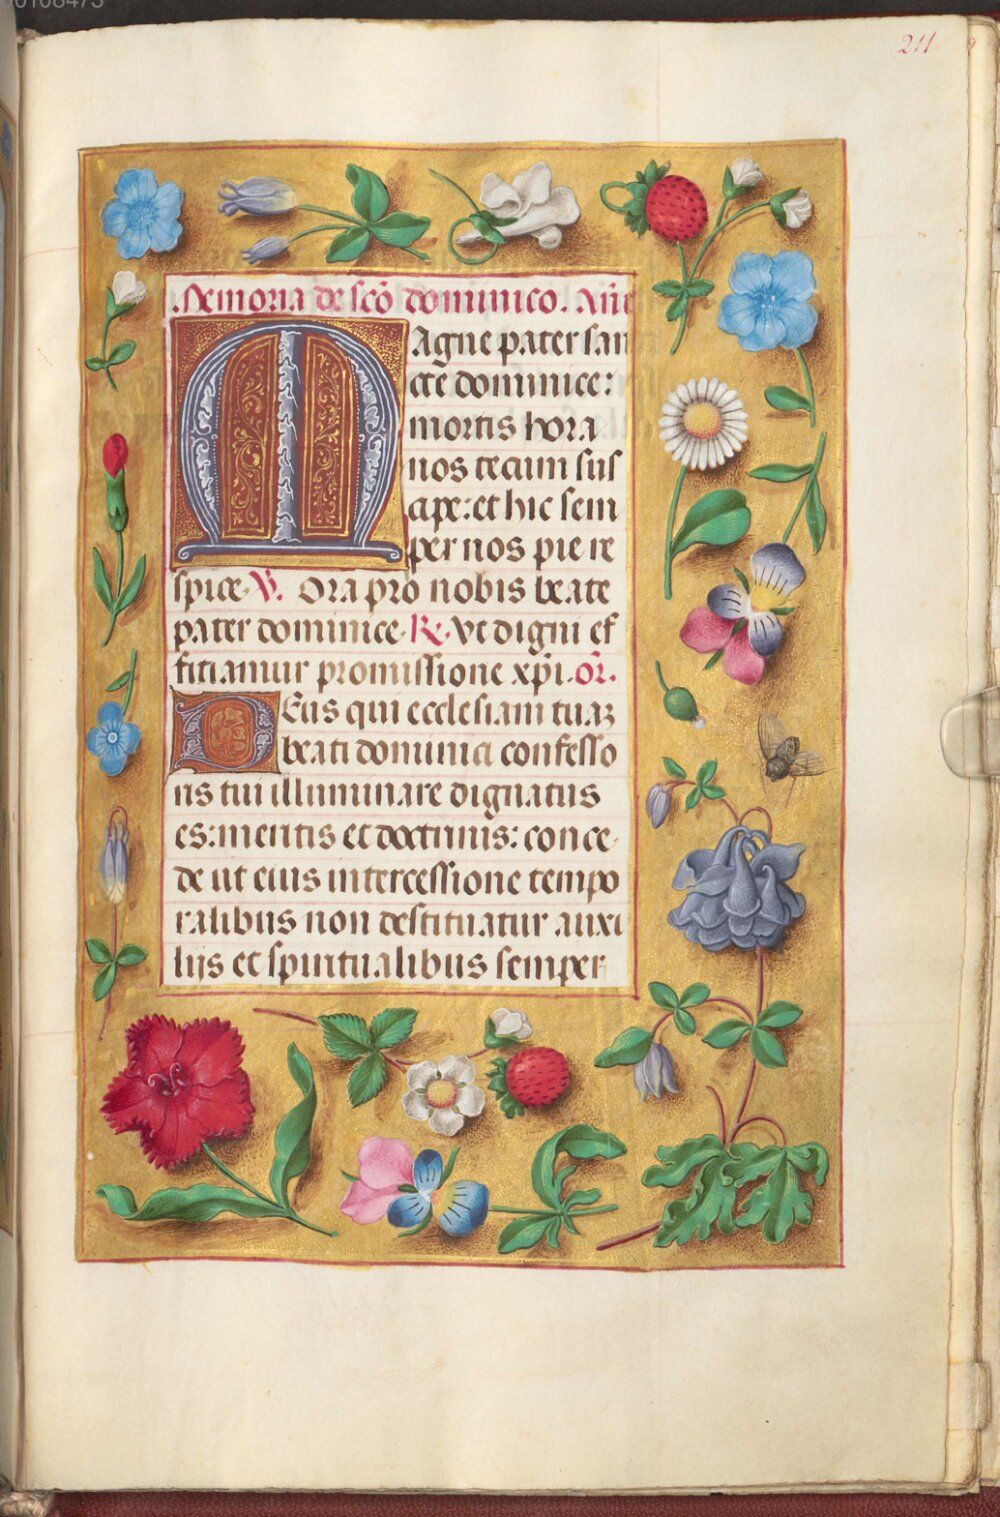 00108473
211
Memoria de scō dominico. Añt
Magne pater san
cte dominice:
mortis hora
nos tecum sus
cipe: et hic sem
per nos pie re
spice. V̄. Ora pro nobis beate
pater dominice. R̄. Vt digni ef
ficiamur promissione xp̄i. or̄.
Deus qui ecclesiam tuaʒ
beati dominici confesso
ris tui illuminare dignatus
es: meritis et doctrinis: conce
de ut eius intercessione tempo
ralibus non destituatur auxi
liis et spiritualibus semper